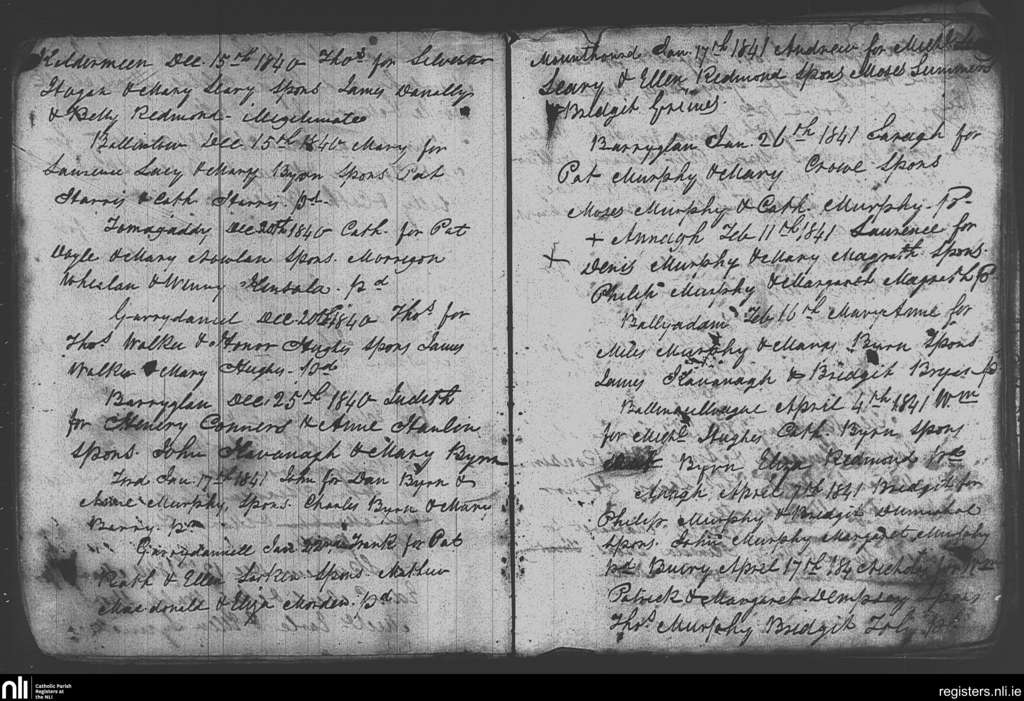 Kildermeen Dec. 15th 1840 Thos for Silvester
Hogan & Mary Leary Spons James Donally
& Betty Redmond - illegitimate
Dec. 15th 1840 Mary for
Laurence Lacy & Mary Byrn Spons Pat
Harris & Cath. Harris pd.
Tomagaddy Dec 20th 1840 Cath. for Pat
Doyle & Mary Nowlan Spons. Morregon
Whealan & Winny Kinsala. pd
Garrydaniel Dec 20th 1840 Thos for
Thos Walker & Honor Hughs Spons James
Walker & Mary Hughs. pd
Barryglan Dec. 25th 1840 Judith
for Henery Conners & Anne Hanlon
Spons. John Kavanagh & Mary Byrn
Jan. 17th 1841 John for Dan Byrn &
Anne Murphy, Spons. Charles Byrn & Mary
Barry. pd
Garrydaniell Jan 22nd Frank for Pat
Roath & Ellen Larken Spons. Mathew
Macdonell & Eliza Morden. pd
Mounthoward Jan. 17th 1841 Andrew for Michl
Leary & Ellen Redmond Spons Moses Summers
& Bridgit Grimes
Barryglan Jan. 26th 1841 Saragh for
Pat Murphy & Mary Crowe Spons
Moses Murphy & Cath. Murphy. Pd
+ Annagh Feb 11th 1841 Laurence for
+ Denis Murphy & Mary Magrath Spons.
Philip Murphy & Margaret Magrath P
Ballyadam Feb. 16th Maryanne for
Miles Murphy & Margt Byrn Spons
James Kavanagh & Bridgit Bryes p
April 4th 1841 Wm
for Michl Hughes Cath. Byrn Spons
Byrn Eliza Redmond
Anagh April 9th 1841 Bridgit for
Philip. Murphy & Bridgit
Spons. John Murphy Margaret Murphy
pd April 17th 184 for
Patrick & Margaret Dempsey Spons
Thos Murphy Bridgit pd
nli
Catholic Parish
Registers at
the NLI
registers.nli.ie